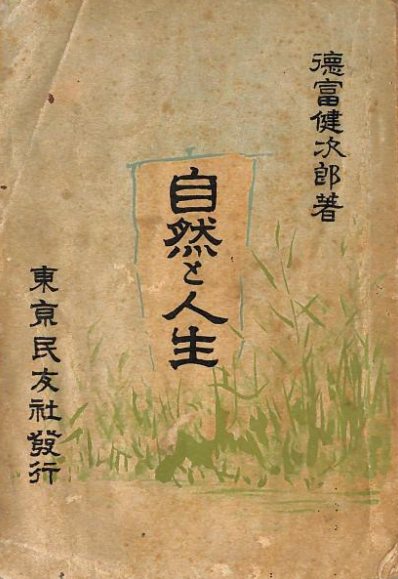 德富健次郎著
自然と人生
東京民友社發行